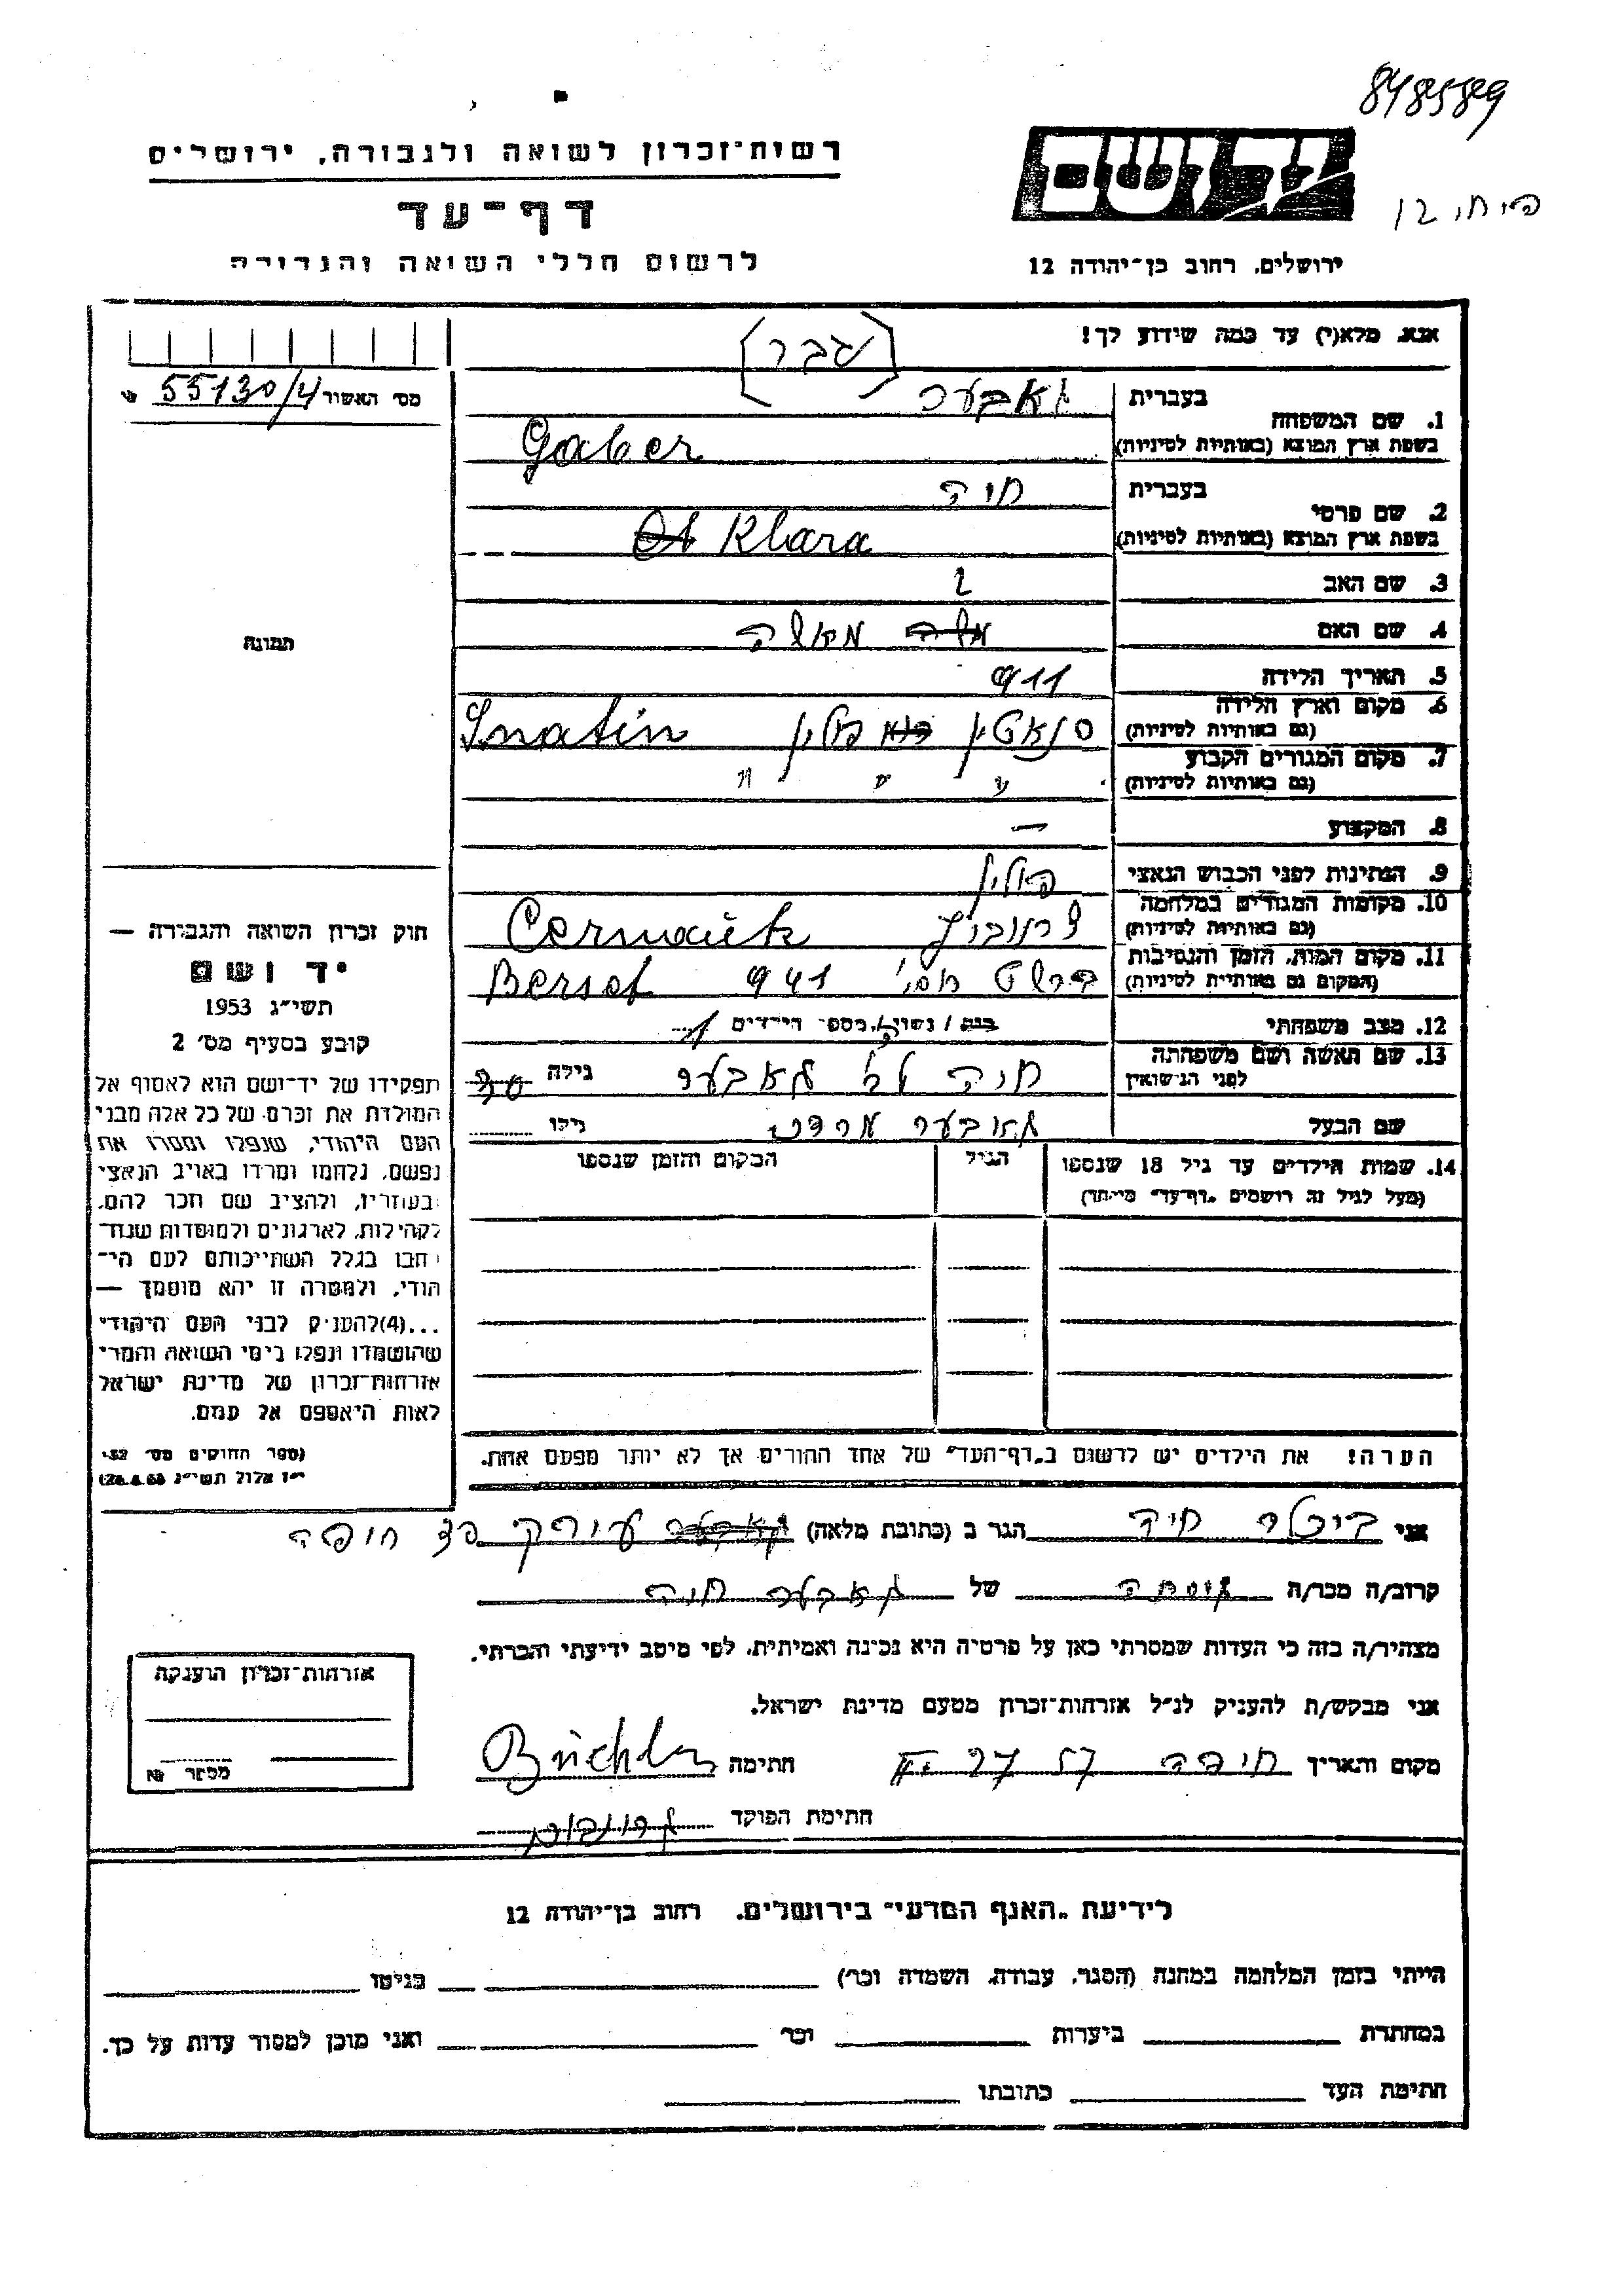 8485589
רשות־זכרון לשואה ולגבורה, ירושלים
יד ושם
דף־עד
לרשום חללי השואה והגבורה
ירושלים, רחוב בן־יהודה 12
אנא, מלא(י) עד כמה שידוע לך!
(גבר)
מס׳ האשור 55130/4
1. שם המשפחה
בעברית גאבער
בשפת ארץ המוצא (באותיות לטיניות) Gaber
2. שם פרטי
בעברית חיה
בשפת ארץ המוצא (באותיות לטיניות) Klara
3. שם האב
4. שם האם
5. תאריך הלידה 911
6. מקום וארץ הלידה
(גם באותיות לטיניות) סנאטין פולין Snatin
7. מקום המגורים הקבוע
(גם באותיות לטיניות) " " "
8. המקצוע —
9. הנתינות לפני הכבוש הנאצי פולין
10. מקומות המגורים במלחמה
(גם באותיות לטיניות)
11. מקום המות, הזמן והנסיבות
(המקום גם באותיות לטיניות) 941
12. מצב משפחתי רווק/ה / נשוי/ה, מספר הילדים 1
13. שם האשה ושם משפחתה
לפני הנישואין חיה גאבער גילה 30
שם הבעל גאבער גילו
14. שמות הילדים עד גיל 18 שנספו
(מעל לגיל זה רושמים „דף־עד״ מיוחד)
הגיל
המקום והזמן שנספו
הערה! את הילדים יש לרשום ב„דף־העד״ של אחד ההורים אך לא יותר מפעם אחת.
תמונה
חוק זכרון השואה והגבורה —
יד ושם
תשי״ג 1953
קובע בסעיף מס׳ 2
תפקידו של יד־ושם הוא לאסוף אל
המולדת את זכרם של כל אלה מבני
העם היהודי, שנפלו ומסרו את
נפשם, נלחמו ומרדו באויב הנאצי
ובעוזריו, ולהציב שם וזכר להם,
לקהילות, לארגונים ולמוסדות שנח־
רבו בגלל השתייכותם לעם הי־
הודי, ולמטרה זו יהא מוסמך —
...(4) להעניק לבני העם היהודי
שהושמדו ונפלו בימי השואה והמרי
אזרחות־זכרון של מדינת ישראל
לאות היאספם אל עמם.
(ספר החוקים מס׳ 132,
י״ז אלול תשי״ג 28.8.53)
אני חיה הגר ב (כתובת מלאה) חיפה
קרוב/ה מכר/ה גיסתה של גאבער חיה
מצהיר/ה בזה כי העדות שמסרתי כאן על פרטיה היא נכונה ואמיתית, לפי מיטב ידיעתי והכרתי.
אני מבקש/ת להעניק לנ״ל אזרחות־זכרון מטעם מדינת ישראל.
מקום ותאריך חיפה 27 57 חתימה
חתימת הפוקד
אזרחות־זכרון הוענקה
מספר
לידיעת „האגף המדעי״ בירושלים, רחוב בן־יהודה 12
הייתי בזמן המלחמה במחנה (הסגר, עבודה, השמדה וכו׳) בגיטו
במחתרת ביערות וכו׳ ואני מוכן למסור עדות על כך.
חתימת העד כתובתו